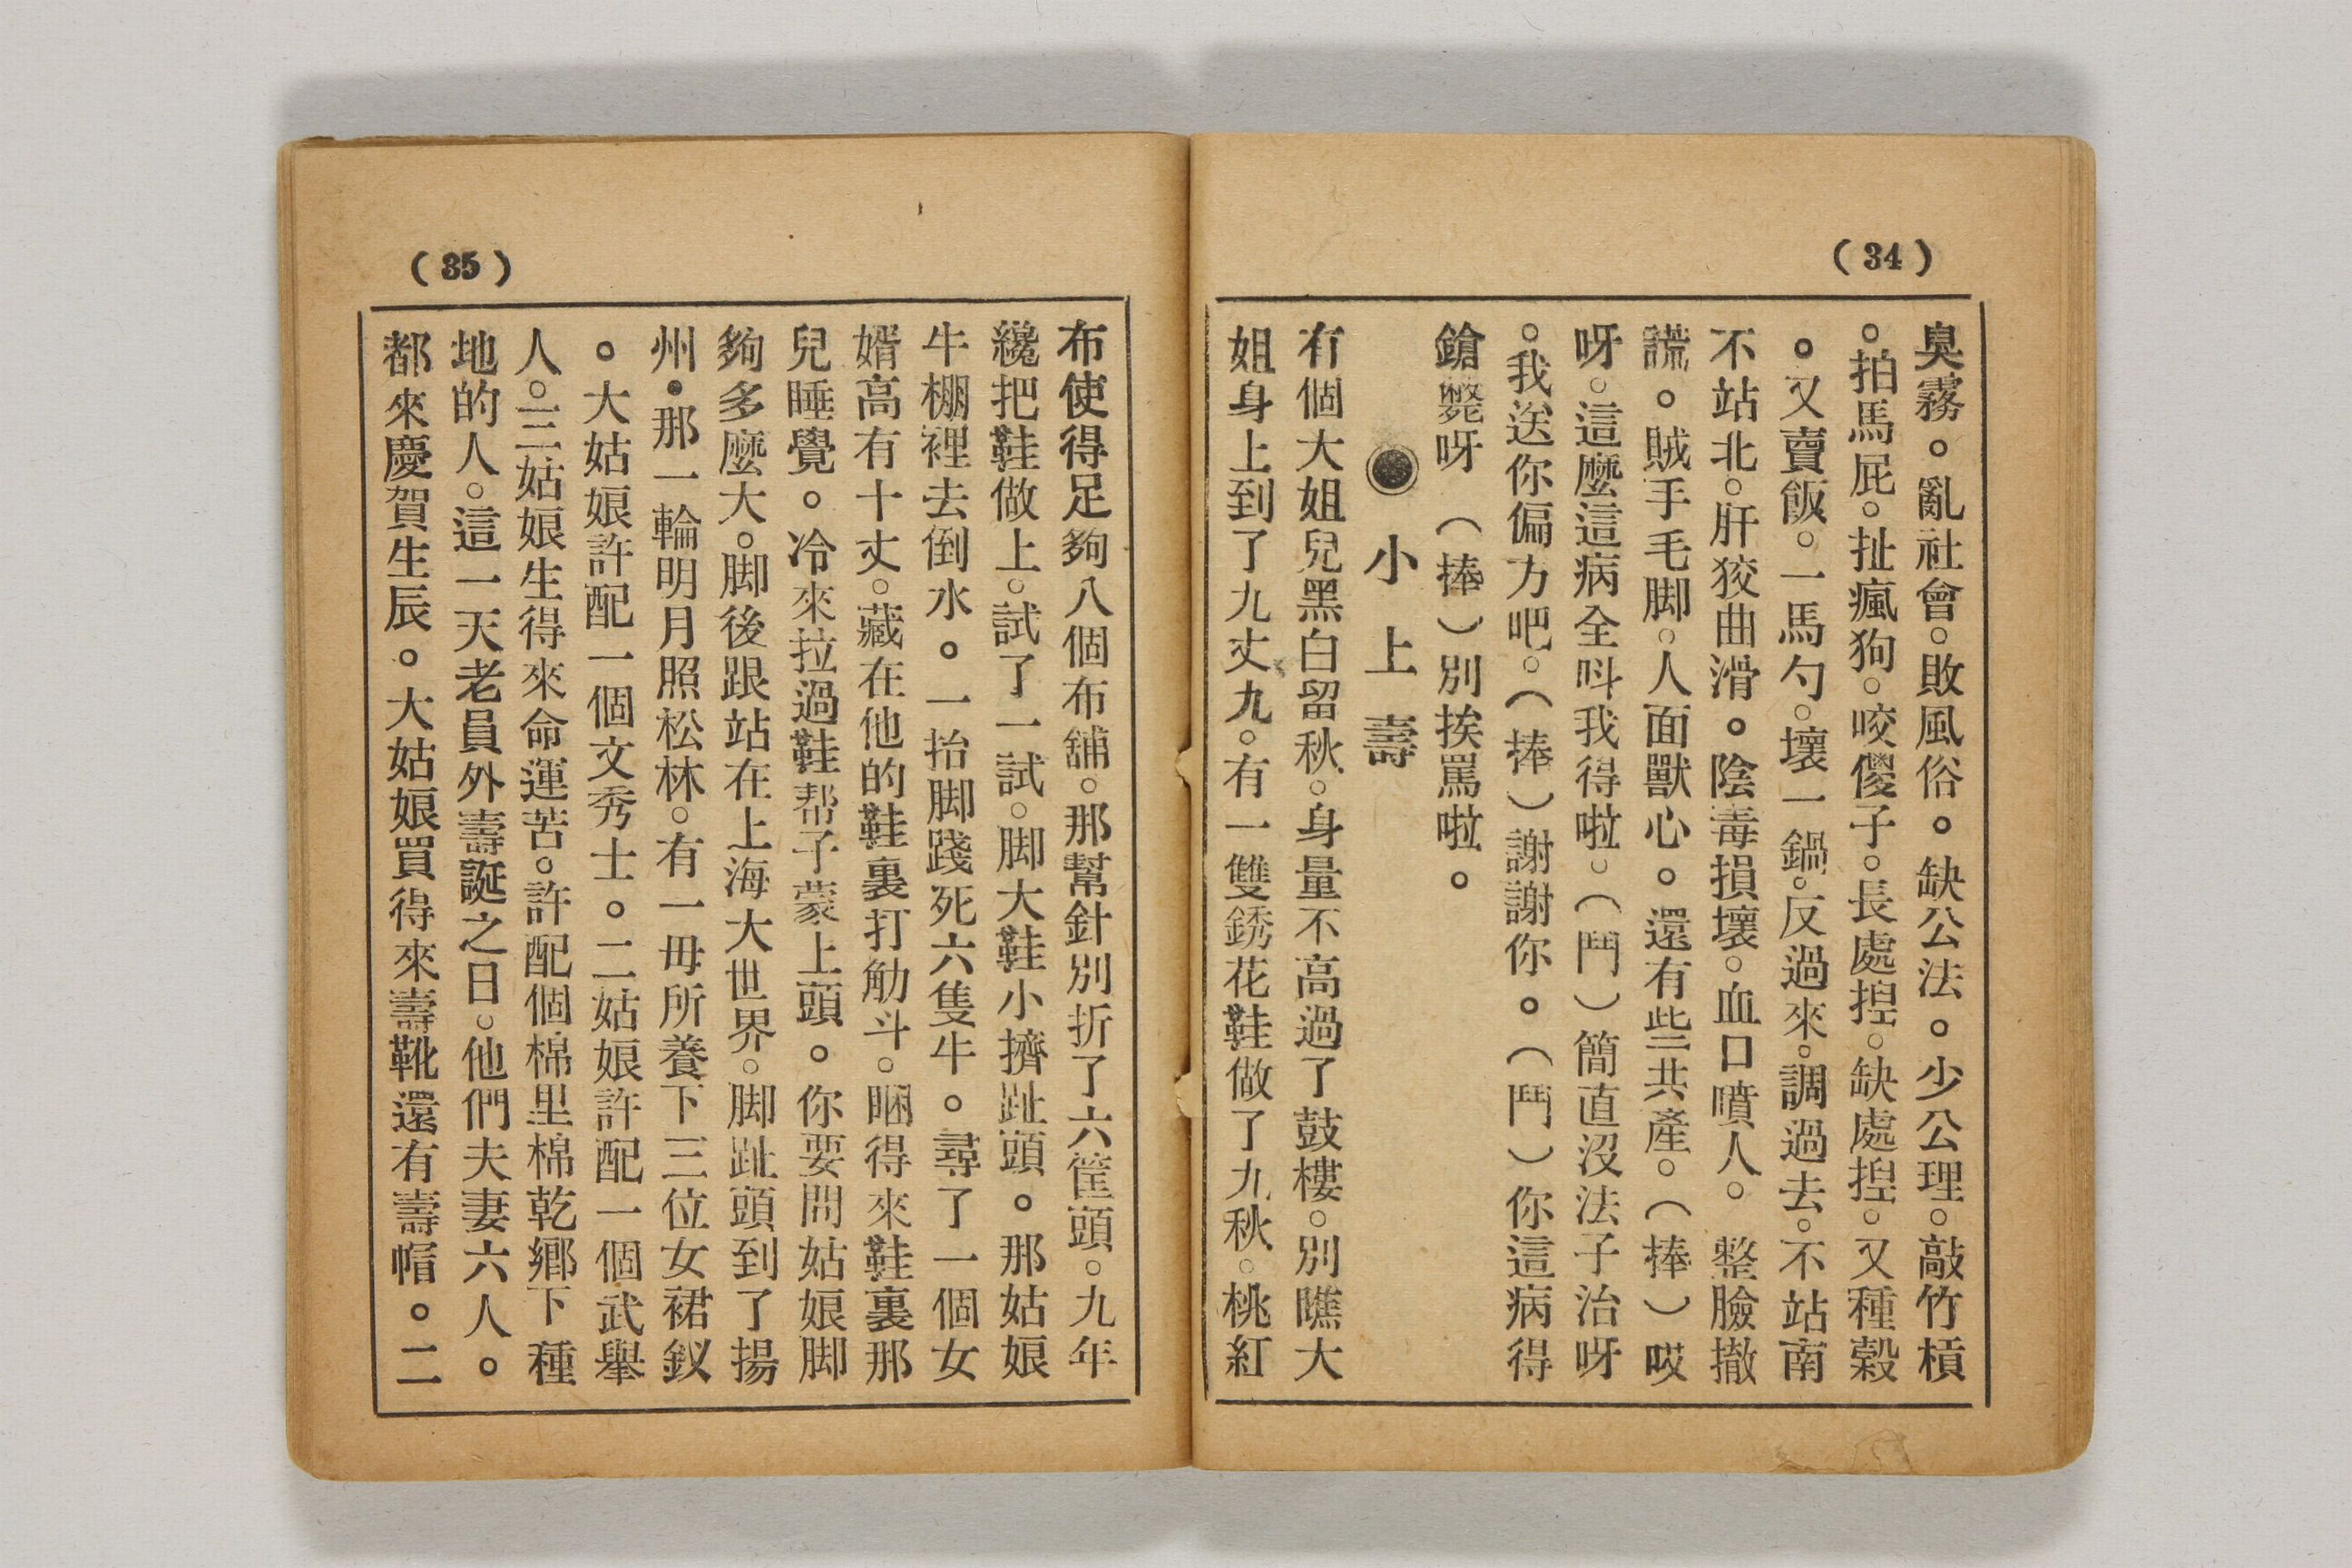 (34)
臭霧。亂社會。敗風俗。缺公法。少公理。敲竹槓
。拍馬屁。扯瘋狗。咬傻子。長處揑。缺處揑。又種穀
。又賣飯。一馬勺。壞一鍋。反過來。調過去。不站南
不站北。肝狡曲滑。陰毒損壞。血口噴人。整臉撤
謊。賊手毛脚。人面獸心。還有些共產。（捧）哎
呀。這麼這病全呌我得啦。（鬥）簡直沒法子治呀
。我送你偏方吧。（捧）謝謝你。（鬥）你這病得
鎗斃呀（捧）別挨罵啦。
◉小上壽
有個大姐兒黑白留秋。身量不高過了鼓樓。別瞧大
姐身上到了九丈九。有一雙銹花鞋做了九秋。桃紅
(35)
布使得足夠八個布舖。那幫針別折了六筐頭。九年
纔把鞋做上。試了一試。脚大鞋小擠趾頭。那姑娘
牛棚裡去倒水。一抬脚踐死六隻牛。尋了一個女
婿高有十丈。藏在他的鞋裏打觔斗。睏得來鞋裏那
兒睡覺。冷來拉過鞋帮子蒙上頭。你要問姑娘脚
夠多麼大。脚後跟站在上海大世界。脚趾頭到了揚
州。那一輪明月照松林。有一毋所養下三位女裙釵
。大姑娘許配一個文秀士。二姑娘許配一個武舉
人。三姑娘生得來命運苦。許配個棉里棉乾鄉下種
地的人。這一天老員外壽誕之日。他們夫妻六人。
都來慶賀生辰。大姑娘買得來壽靴還有壽帽。二